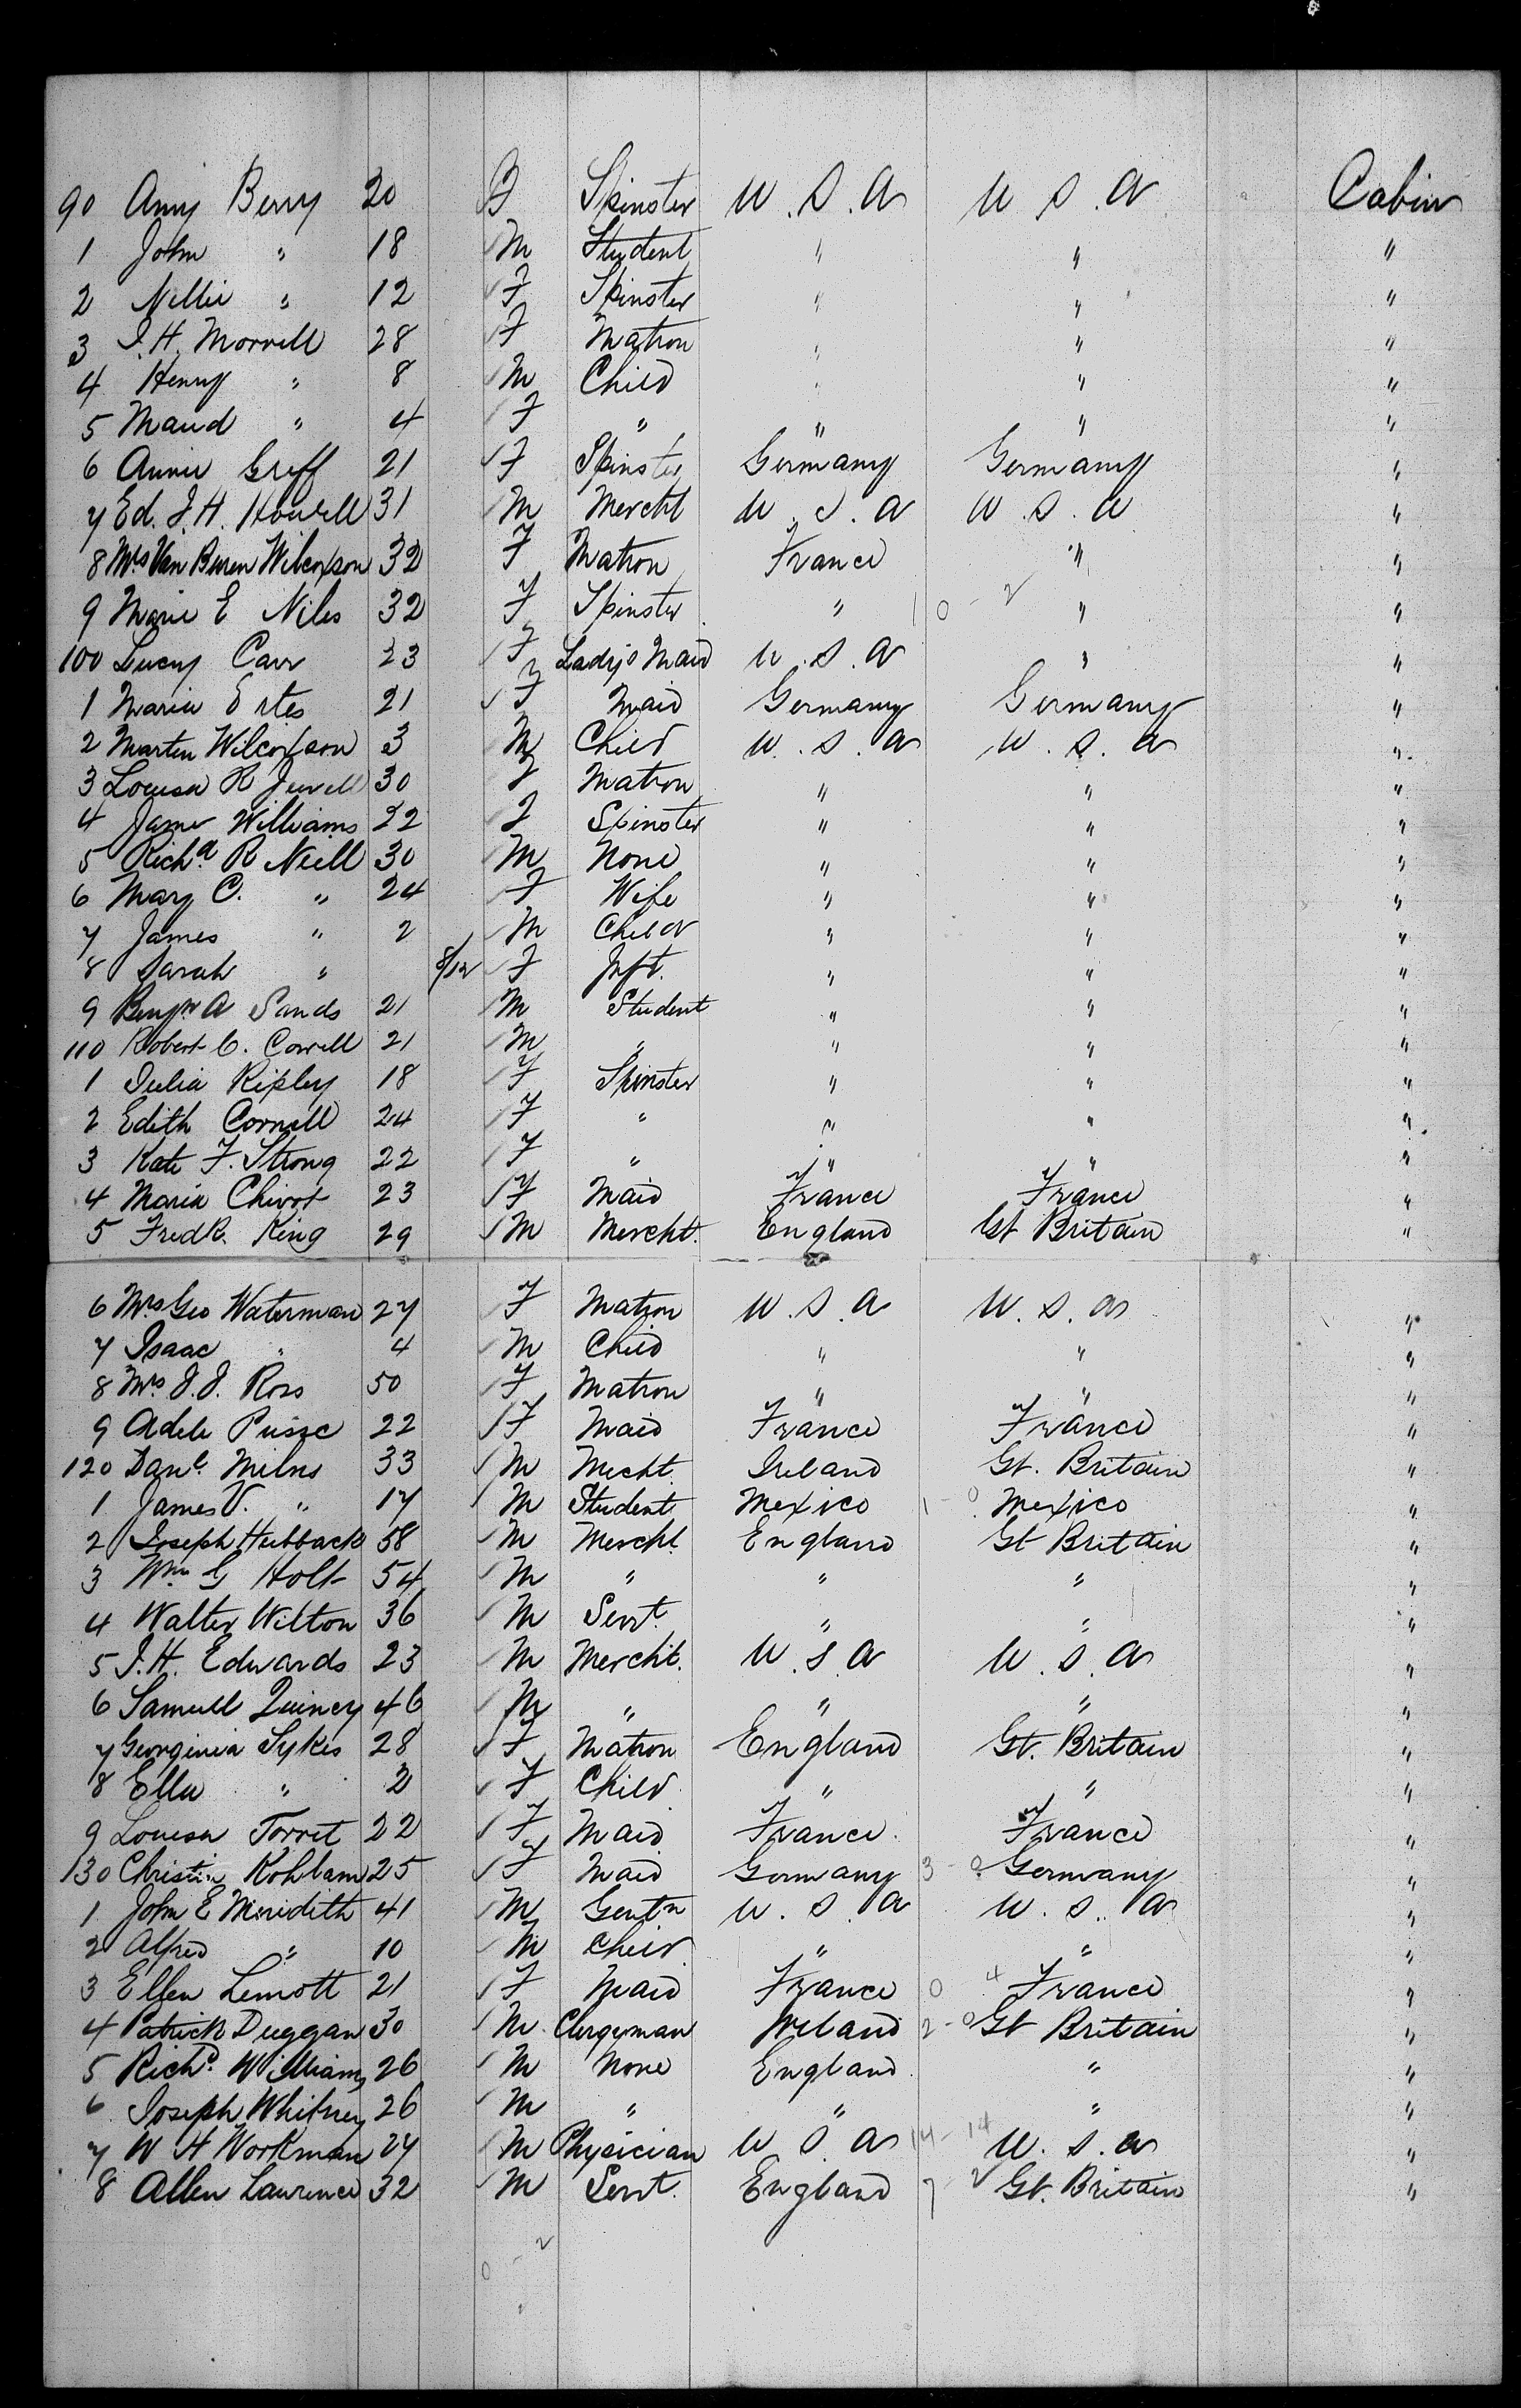 90 Amy Berry 20 F Spinster U.S.A U S.A Cabin
1 John " 18 M Student " " "
2 Nellie " 12 F Spinster " " "
3 J.H. Morrell 28 F Matron " " "
4 Henry " 8 M Child " " "
5 Maud " 4 F " " " "
6 Annie Greff 21 F Spinster Germany Germany "
7 Ed. J.H. Howell 31 M Mercht U.S.A U.S.A "
8 Mrs Van Buren Wilcoxson 32 F Matron France " "
9 Marie E Niles 32 F Spinster " " "
100 Lucy Carr 23 F Ladys Maid U.S.A " "
1 Maria Ertes 21 F Maid Germany Germany "
2 Martin Wilcoxson 3 M Child U.S.A U.S.A "
3 Louisa R Jewell 30 F Matron " " "
4 Jane Williams 22 F Spinster " " "
5 Richd R Neill 30 M None " " "
6 Mary C. " 24 F Wife " " "
7 James " 2 M Child " " "
8 Sarah " 8/12 F Inft. " " "
9 Benjn A Sands 21 M Student " " "
110 Robert C. Cornell 21 M " " " "
1 Julia Ripley 18 F Spinster " " "
2 Edith Cornell 24 F " " " "
3 Kate F. Strong 22 F " " " "
4 Maria Chivot 23 F Maid France France "
5 Fredk. King 29 M Mercht. England Gt Britain "
6 Mrs Geo Waterman 27 F Matron U.S.A U.S.A "
7 Isaac " 4 M Child " " "
8 Mrs J.J. Ross 50 F Matron " " "
9 Adele 22 F Maid France France "
120 Danl. Milns 33 M Mecht. Ireland Gt. Britain "
1 James V. " 17 M Student Mexico 1-0 Mexico "
2 Joseph Hubback 58 M Mercht England Gt Britain "
3 Wm G Holt 54 M " " " "
4 Walter Wilton 36 M Servt. " " "
5 J.H. Edwards 23 M Mercht. U.S.A U.S.A "
6 Samuel Quincy 46 M " " " "
7 Georginia Sykes 28 F Matron England Gt. Britain "
8 Ella " 2 F Child " " "
9 Louisa Torret 22 F Maid France France "
130 Christin Kohlbam 25 F Maid Germany 3-0 Germany "
1 John E Meridith 41 M Gentn U.S.A U.S.A "
2 Alfred " 10 M Child " " "
3 Ellen Lemott 21 F Maid France 0 4 France "
4 Patrick Duggan 30 M Clergyman Ireland 2-0 Gt Britain "
5 Richd. Williams 26 M None England " "
6 Joseph Whitney 26 M " " " "
7 W H Workman 27 M Physician U S A 14-14 U.S.A "
8 Allen Lawrence 32 M Servt. England 7-2 Gt. Britain "
0-2